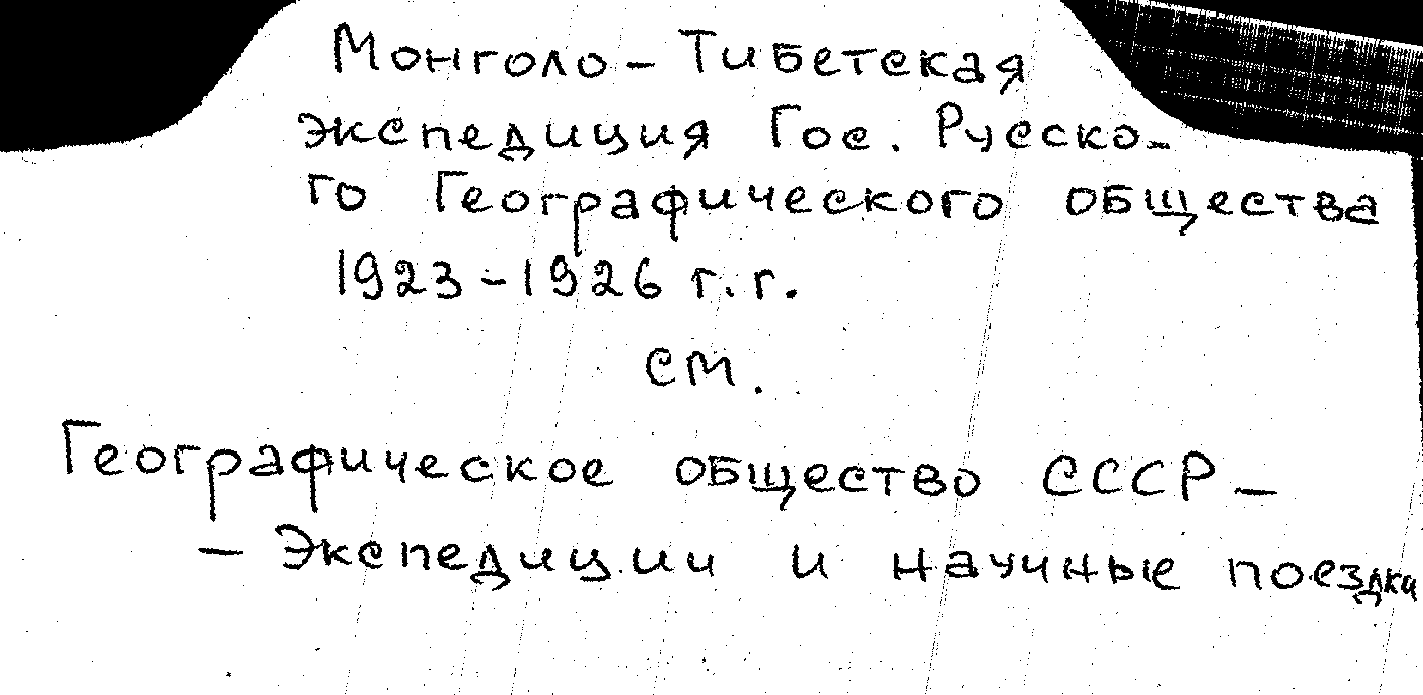 Монголо-Тибетская
экспедиция Гос. Русско-
го Географического общества
1923-1926 г.г.
см.
Географическое общество СССР -
- Экспедиции и научные поездки